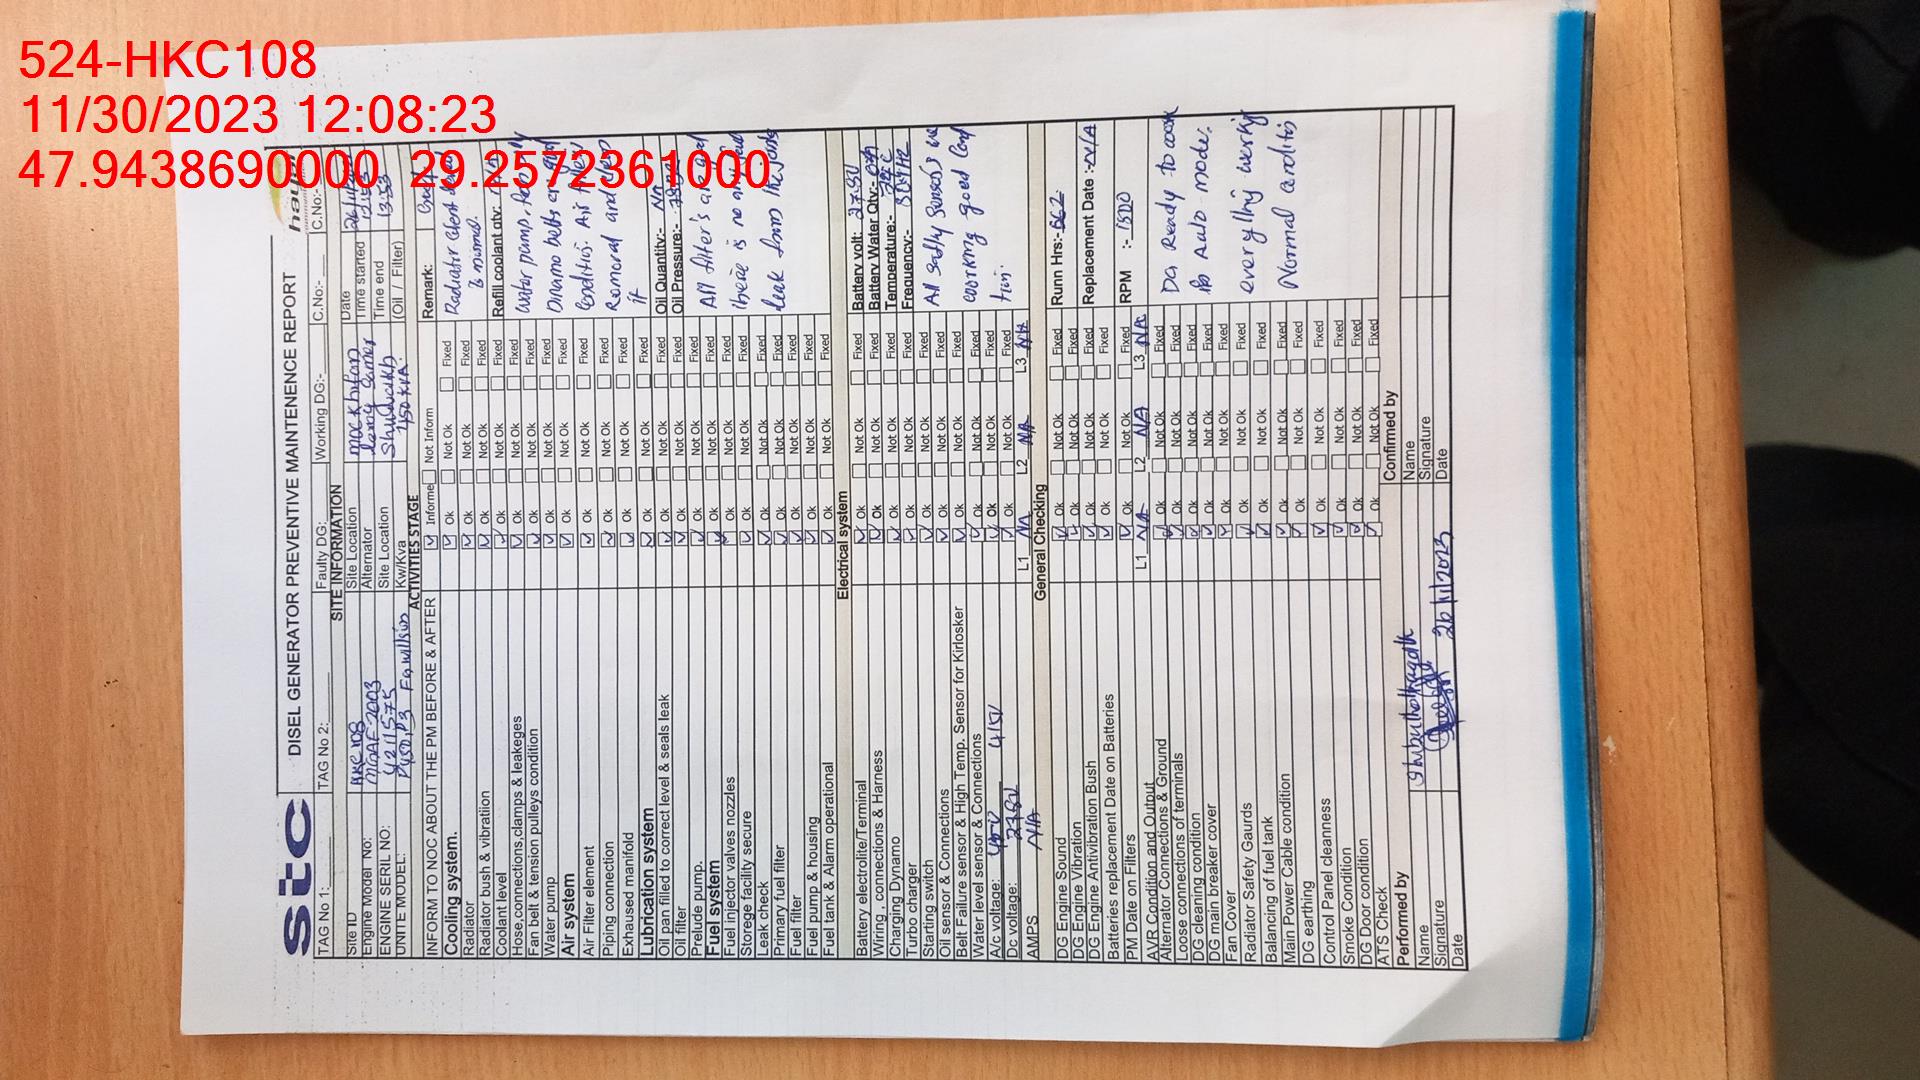 524-HKC108
11/30/2023 12:08:23
47.9438690000 29.2572361000
stc
DISEL GENERATOR PREVENTIVE MAINTENENCE REPORT
TAG No 1:____ TAG No 2:____ Faulty DG:____ Working DG:-____ C.No:-____ C.No:-____
SITE INFORMATION
Site ID HKC108 Site Location Date
Engine Model No: Alternator Time started
ENGINE SERIL NO: Site Location Shuwaikh Time end 13:53
UNITE MODEL: Kw/Kva 450 KVA (Oil / Filter)
ACTIVITIES STAGE
INFORM TO NOC ABOUT THE PM BEFORE & AFTER Informe Not Inform Remark: Good
Cooling system. Ok Not Ok Fixed
Radiator Ok Not Ok Fixed
Radiator bush & vibration Ok Not Ok Fixed
Coolant level Ok Not Ok Fixed Refill coolant qty: N/A
Hose,connections,clamps & leakeges Ok Not Ok Fixed
Fan belt & tension pulleys condition Ok Not Ok Fixed
Water pump Ok Not Ok Fixed
Air system Ok Not Ok Fixed
Air Filter element Ok Not Ok Fixed
Piping connection Ok Not Ok Fixed
Exhaused manifold Ok Not Ok Fixed
Lubrication system Ok Not Ok Fixed
Oil pan filled to correct level & seals leak Ok Not Ok Fixed Oil Quantity:- NA
Oil filter Ok Not Ok Fixed Oil Pressure:-
Prelude pump. Ok Not Ok Fixed
Fuel system Ok Not Ok Fixed All filter's are good
Fuel injector valves nozzles Ok Not Ok Fixed
Storege facility secure Ok Not Ok Fixed there is no any fuel
Leak check Ok Not Ok Fixed
Primary fuel filter Ok Not Ok Fixed leak from the joints
Fuel filter Ok Not Ok Fixed
Fuel pump & housing Ok Not Ok Fixed
Fuel tank & Alarm operational Ok Not Ok Fixed
Electrical system
Battery electrolite/Terminal Ok Not Ok Fixed Battery volt: 27.8V
Wiring ,connections & Harness Ok Not Ok Fixed Battery Water Qty:-
Charging Dynamo Ok Not Ok Fixed Temperature:-
Turbo charger Ok Not Ok Fixed Frequency:-
Starting switch Ok Not Ok Fixed
Oil sensor & Connections Ok Not Ok Fixed
Belt Failure sensor & High Temp. Sensor for Kirlosker Ok Not Ok Fixed
Water level sensor & Connections Ok Not Ok Fixed working good
A/c voltage: 415V Ok Not Ok Fixed
Dc voltage: 27.8V Ok Not Ok Fixed
AMPS N/A L1 NA L2 NA L3 NA
General Checking
DG Engine Sound Ok Not Ok Fixed Runn Hrs:- 662
DG Engine Vibration Ok Not Ok Fixed
DG Engine Antivibration Bush Ok Not Ok Fixed Replacement Date :- N/A
Batteries replacement Date on Batteries Ok Not Ok Fixed
PM Date on Filters Ok Not Ok Fixed RPM :- 1500
AVR Condition and Output L1 NA L2 N/A L3 NA
Alternator Connections & Ground Ok Not Ok Fixed DG Ready to work
Loose connections of terminals Ok Not Ok Fixed
DG cleaning condition Ok Not Ok Fixed Auto-mode.
DG main breaker cover Ok Not Ok Fixed
Fan Cover Ok Not Ok Fixed
Radiator Safety Gaurds Ok Not Ok Fixed everything working
Balancing of fuel tank Ok Not Ok Fixed
Main Power Cable condition Ok Not Ok Fixed Normal condition
DG earthing Ok Not Ok Fixed
Control Panel cleanness Ok Not Ok Fixed
Smoke Condition Ok Not Ok Fixed
DG Door condition Ok Not Ok Fixed
ATS Check Ok Not Ok Fixed
Performed by Confirmed by
Name Name
Signature Signature
Date 26/11/2023 Date